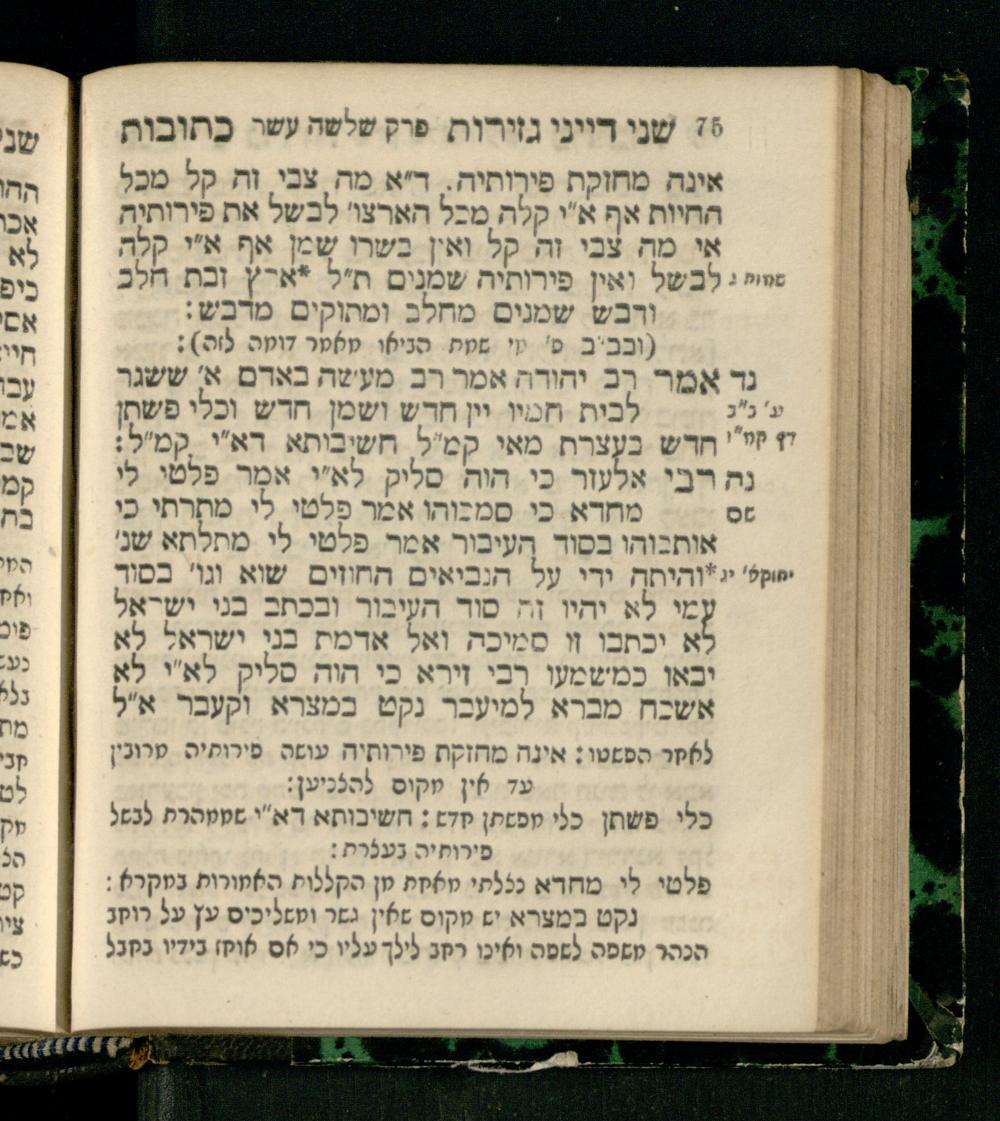 75 שני דייני גזירות פרק שלשה עשר כתובות
אינה מחזקת פירותיה. ד״א מה צבי זה קל מכל
החיות אף א״י קלה מכל הארצו׳ לבשל את פירותיה
אי מה צבי זה קל ואין בשרו שמן אף א״י קלה
לבשל ואין פירותיה שמנים ת״ל *ארץ זבת חלב
שמות ג
ודבש שמנים מחלב ומתוקים מדבש:
(ובב״ב מביאו מאמר דומה לזה):
נד אמר רב יהודה אמר רב מעשה באדם א׳ ששגר
ע׳ ב״ב
לבית חמיו יין חדש ושמן חדש וכלי פשתן
דף
חדש בעצרת מאי קמ״ל חשיבותא דא״י קמ״ל:
נה רבי אלעזר כי הוה סליק לא״י אמר פלטי לי
שם
מחדא כי סמכוהו אמר פלטי לי מתרתי כי
אותבוהו בסוד העיבור אמר פלטי לי מתלתא שנ׳
יחזקא׳ יג
*והיתה ידי על הנביאים החוזים שוא וגו׳ בסוד
עמי לא יהיו זה סוד העיבור ובכתב בני ישראל
לא יכתבו זו סמיכה ואל אדמת בני ישראל לא
יבאו כמשמעו רבי זירא כי הוה סליק לא״י לא
אשכח מברא למיעבר נקט במצרא וקעבר א״ל
לאחר הפשטו: אינה מחזקת פירותיה עושה פירותיה מרובין
עד אין מקום להצניען:
כלי פשתן כלי מפשתן חדש: חשיבותא דא״י שממהרת לבשל
פירותיה בעצרת:
פלטי לי מחדא נצלתי מאחת מן הקללות האמורות במקרא:
נקט במצרא יש מקום שאין גשר ומשליכים עץ על רוחב
הנהר משפה לשפה ואינו רחב לילך עליו כי אם אוחז בידיו בחבל